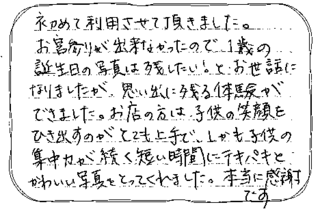 初めて利用させて頂きました。
お宮参りが出来なかったので、1歳の
誕生日の写真は残したい!と、お世話に
なりましたが、思い出に残る体験が
できました。お店の方は、子供の笑顔を
ひき出すのがとても上手で、しかも子供の
集中力が続く短い時間にテキパキと
かわいい写真をとってくれました。本当に感謝
です